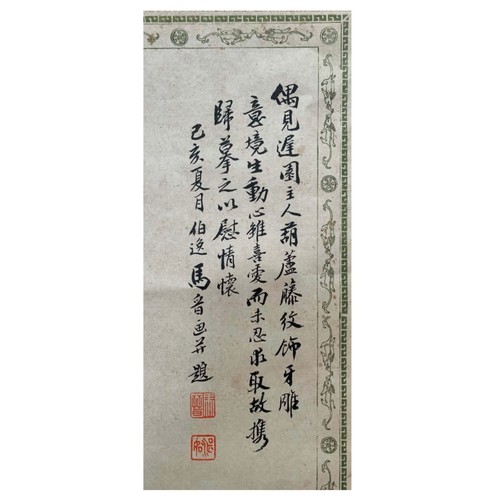 偶見遲園主人葫蘆藤紋飾牙雕
意境生動心雖喜愛而未忍求取故携
歸摹之以慰情懷
己亥夏月伯逸馬晉画并題